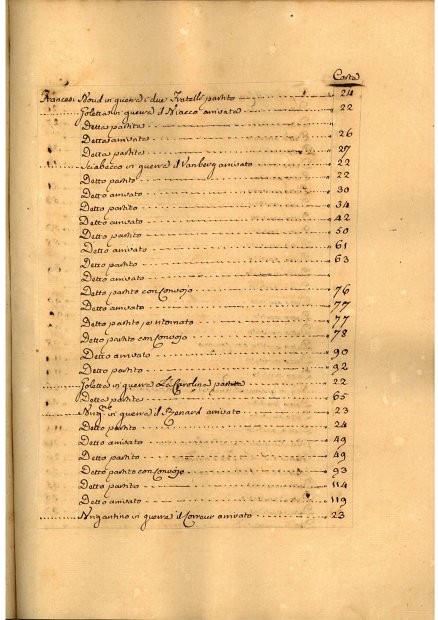 Carta
Francesi Noud in guerra i due Fratelli partito 24
Goletta in guerra il Niacca arrivata 22
Detta partita
Detta arrivata 26
Detta partita 27
Sciabecco in guerra il Vanberg arrivato 22
Detto partito 22
Detto arrivato 30
Detto partito 34
Detto arrivato 42
Detto partito 50
Detto arrivato 61
Detto partito 63
Detto arrivato
Detto partito con Convojo 76
Detto arrivato 77
Detto partito, e ritornato 77
Detto partito con Convojo 78
Detto arrivato 90
Detto partito 92
Goletta in guerra La Carolina partita 22
Detta partita 65
in guerra il Renard arrivato 23
Detto partito 24
Detto arrivato 49
Detto partito 49
Detto partito con Convojo 93
Detto partito 114
Detto arrivato 119
Brigantino in guerra il Correur arrivato 23